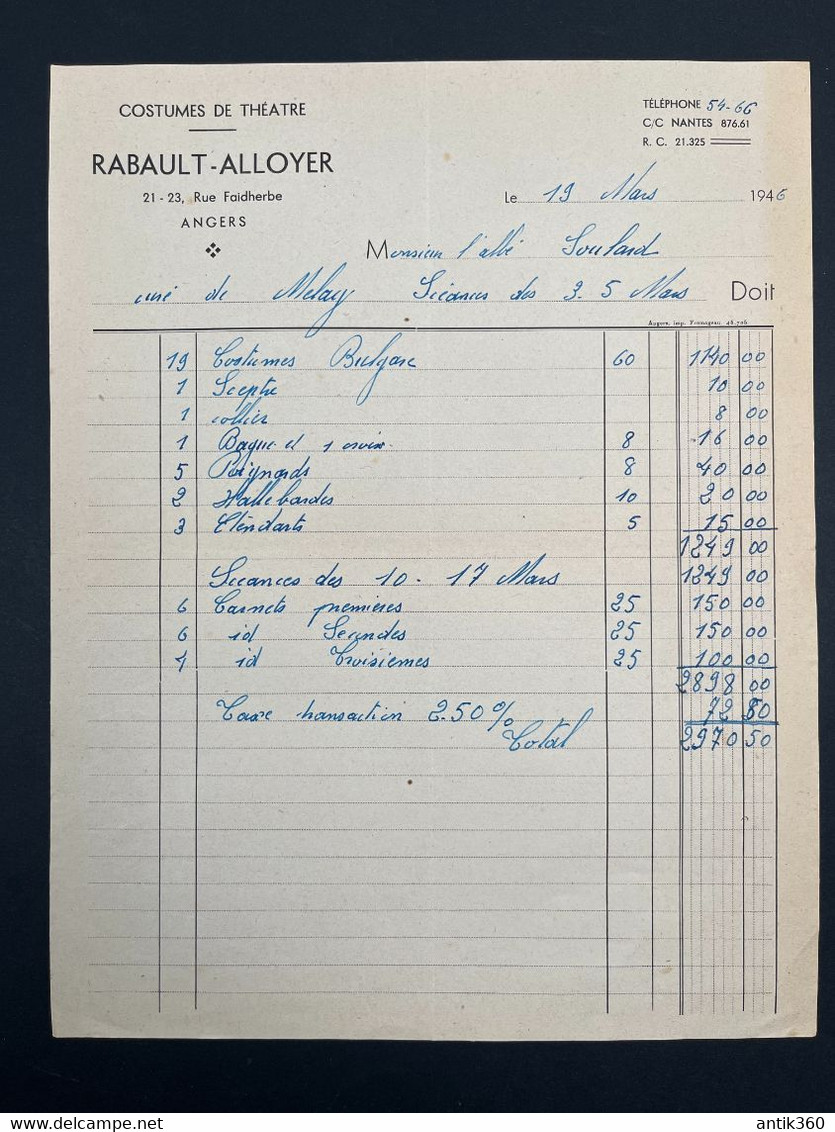 COSTUMES DE THÉATRE
RABAULT-ALLOYER
21 - 23, Rue Faidherbe
ANGERS
TÉLÉPHONE 54-66
C/C NANTES 876.61
R. C. 21.325
Le 19 Mars 1946
Monsieur l'abbé Soulard
curé de Melay Séances des 3-5 Mars Doit
Angers, imp. 48.706
19 Costumes Bulgare 60 1140 00
1 Sceptre 10 00
1 collier 8 00
1 Bague et 1 croix 8 16 00
5 Poignards 8 40 00
2 Hallebardes 10 20 00
3 Etendarts 5 15 00
1249 00
Séances des 10 - 17 Mars 1249 00
6 Carnets premières 25 150 00
6 id Secondes 25 150 00
4 id Troisièmes 25 100 00
2898 00
Taxe transaction 2.50% 72 50
Total 2970 50
antik360